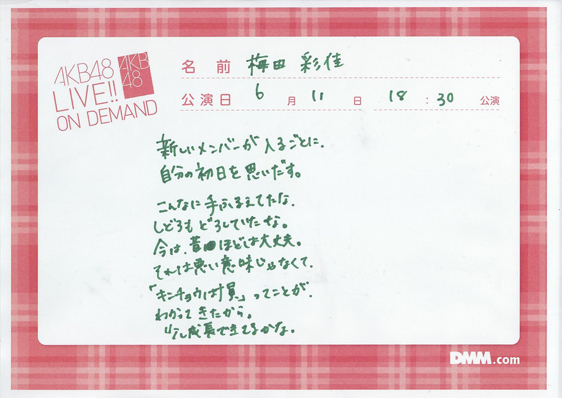 AKB48
LIVE!!
ON DEMAND
AKB
48
名 前 梅田 彩佳
公演日 6 月 11 日 18:30 公演
新しいメンバーが入るごとに、
自分の初日を思いだす。
こんなに手ふるえてたな。
しどろもどろしていたな。
今は、昔ほどは大丈夫。
それは悪い意味じゃなくて、
「キンチョウは損」ってことが、
わかってきたから。
少し成長できてるかな。
DMM.com